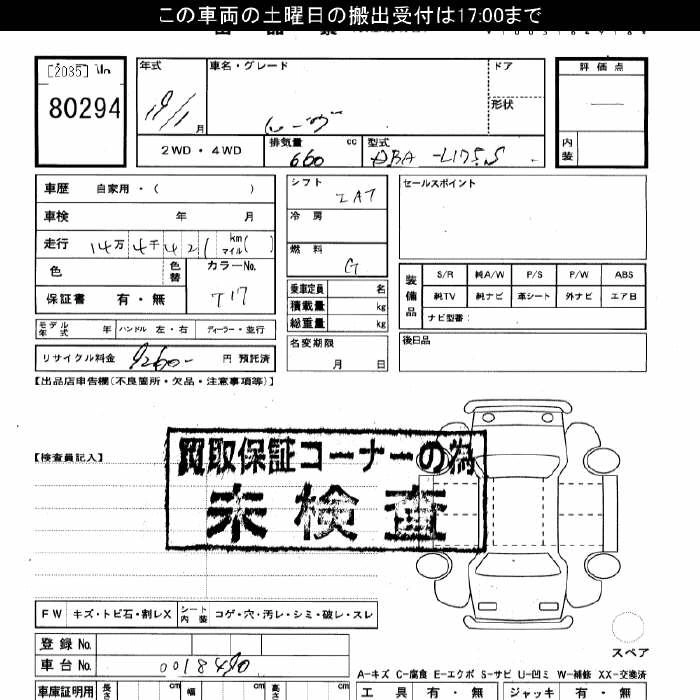 この車両の土曜日の搬出受付は17:00まで
[2035]
80294
年式 車名・グレード ドア
形状
月
2WD・4WD 排気量 cc 660 型式 DBA-L175S
評価点
内装
車歴 自家用・( )
車検 年 月
走行 14万4千421 km マイル( )
色 色替 カラーNo.
T17
保証書 有・無
モデル年式 年 ハンドル 左・右 ディーラー・並行
リサイクル料金 9260- 円 預託済
シフト IAT
冷房
燃料 G
乗車定員 名
積載量 kg
総重量 kg
名変期限
月 日
セールスポイント
装備品 S/R 純A/W P/S P/W ABS
純TV 純ナビ 革シート 外ナビ エアB
ナビ型番:
後日品
【出品店申告欄(不良箇所・欠品・注意事項等)】
【検査員記入】
買取保証コーナーの為
未検査
FW キズ・トビ石・割レX シート内装 コゲ・穴・汚レ・シミ・破レ・スレ
登録No.
車台No. 0018490
スペア
A-キズ C-腐食 E-エクボ S-サビ U-凹ミ W-補修 XX-交換済
車庫証明用 長さ cm 幅 cm 高さ cm
工具 有・無 ジャッキ 有・無